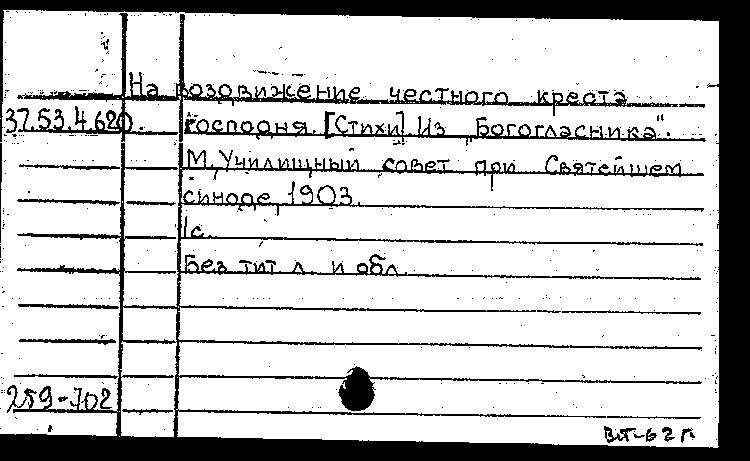 На воздвижение честного креста
37.53.4.620. господня. [Стихи] Из „Богогласника".
М., Училищный совет при Святейшем
синоде, 1903.
1с.
Без тит. л. и обл.
259-702